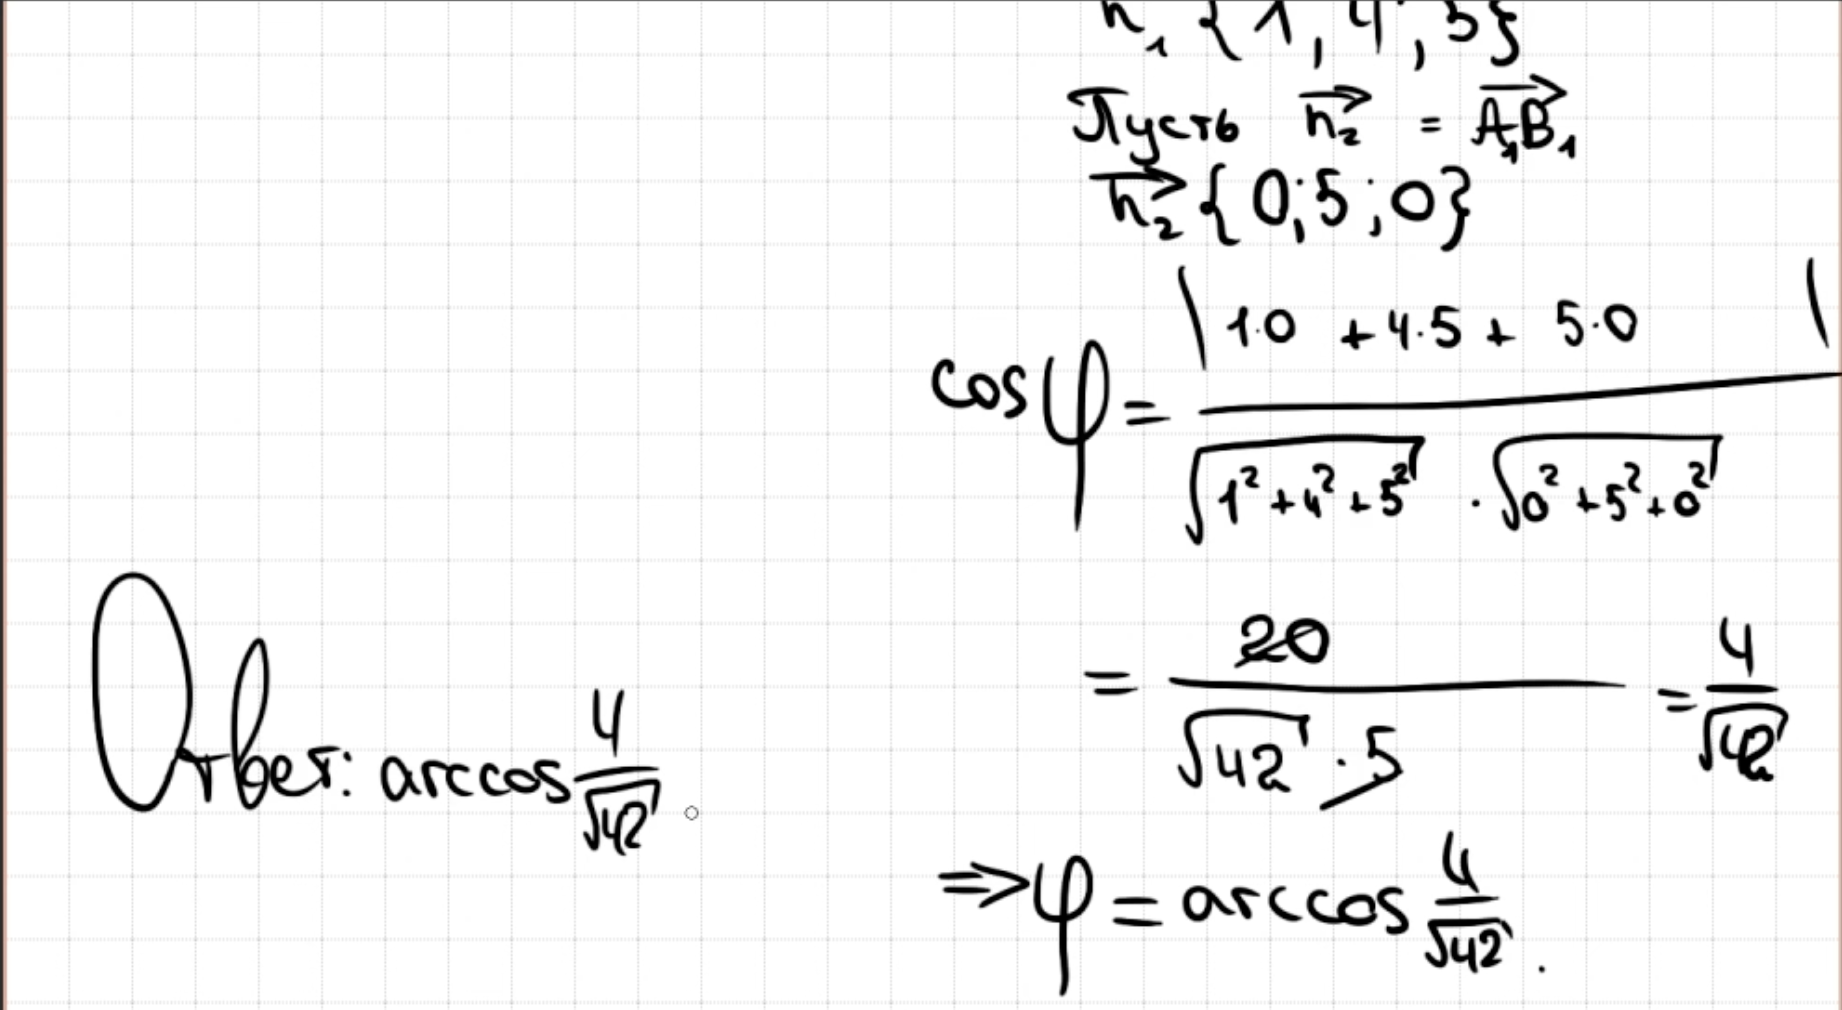 n₁ {1, 4, 5}
Пусть n₂ = A₁B₁
n₂ {0;5;0}
cos φ = |1·0 + 4·5 + 5·0| / √(1² + 4² + 5²) · √(0² + 5² + 0²)
= 20 / √42 · 5 = 4 / √42
Ответ: arccos 4/√42
⇒ φ = arccos 4/√42.